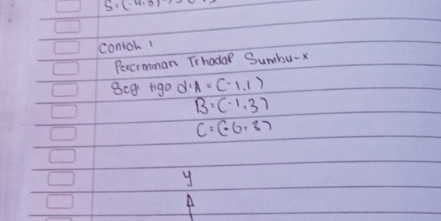 Contoh 1
Pencerminan Trhadap Sumbu-x
Seg tiga d: A = (-1,1)
B = (-1,3)
C = (-6,3)
y